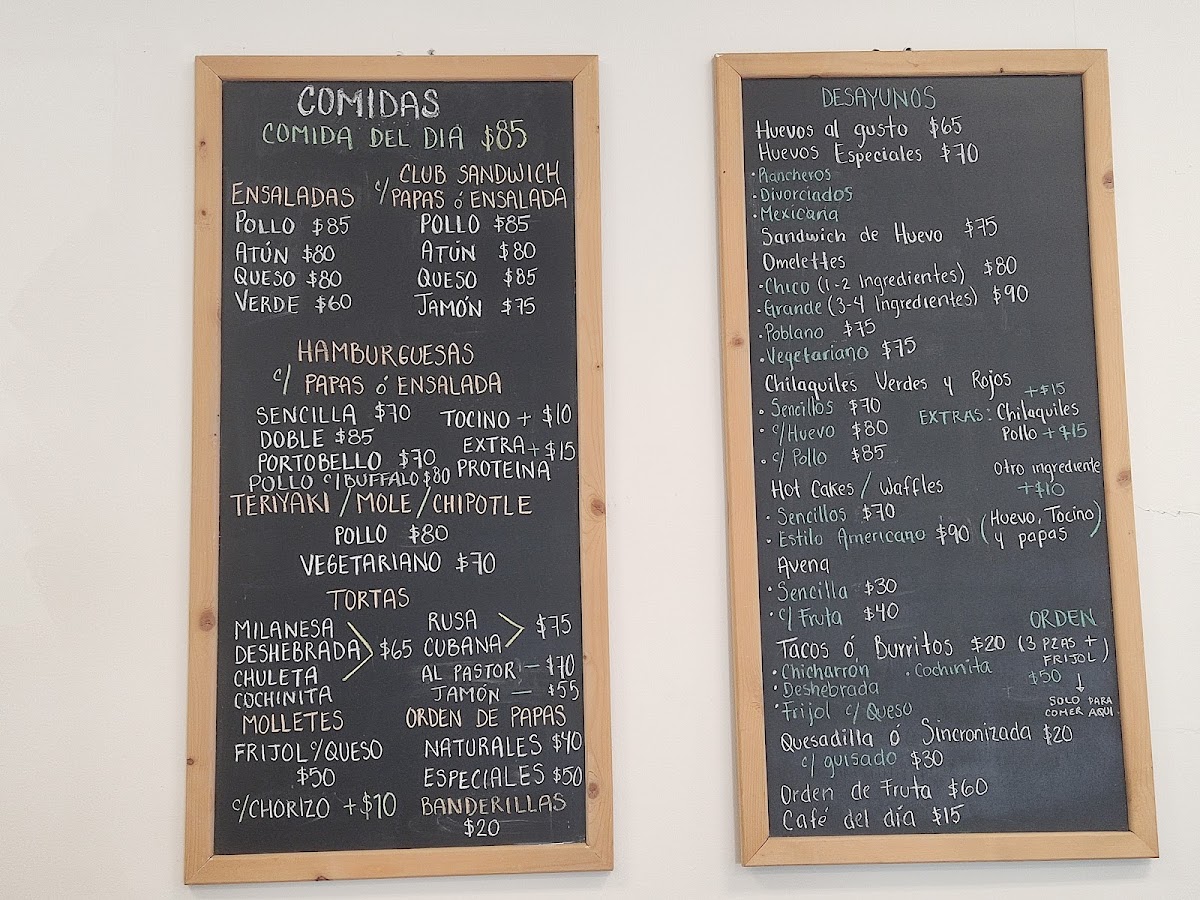 COMIDAS
COMIDA DEL DIA $85
ENSALADAS
POLLO $85
ATÚN $80
QUESO $80
VERDE $60
CLUB SANDWICH
c/ PAPAS ó ENSALADA
POLLO $85
ATÚN $80
QUESO $85
JAMÓN $75
HAMBURGUESAS
c/ PAPAS ó ENSALADA
SENCILLA $70
DOBLE $85
PORTOBELLO $70
POLLO c/BUFFALO $80
TOCINO + $10
EXTRA + $15
PROTEINA
TERIYAKI / MOLE / CHIPOTLE
POLLO $80
VEGETARIANO $70
TORTAS
MILANESA
DESHEBRADA $65
CHULETA
COCHINITA
RUSA
CUBANA $75
AL PASTOR — $70
JAMÓN — $55
MOLLETES
FRIJOL c/QUESO
$50
c/CHORIZO +$10
ORDEN DE PAPAS
NATURALES $40
ESPECIALES $50
BANDERILLAS
$20
DESAYUNOS
Huevos al gusto $65
Huevos Especiales $70
· Rancheros
· Divorciados
· Mexicana
Sandwich de Huevo $75
Omelettes
· Chico (1-2 Ingredientes) $80
· Grande (3-4 Ingredientes) $90
· Poblano $75
· Vegetariano $75
Chilaquiles Verdes y Rojos
· Sencillos $70
· c/Huevo $80
· c/ Pollo $85
+$15
EXTRAS: Chilaquiles
Pollo +$15
Otro ingrediente
+$10
Hot Cakes / Waffles
· Sencillos $70
· Estilo Americano $90 (Huevo, Tocino
y papas)
Avena
· Sencilla $30
· c/ Fruta $40
ORDEN
Tacos ó Burritos $20 (3 PZAS +
FRIJOL)
$50
↓
SOLO PARA
COMER AQUI.
· Chicharrón · Cochinita
· Deshebrada
· Frijol c/ Queso
Quesadilla ó Sincronizada $20
c/ guisado $30
Orden de Fruta $60
Café del día $15